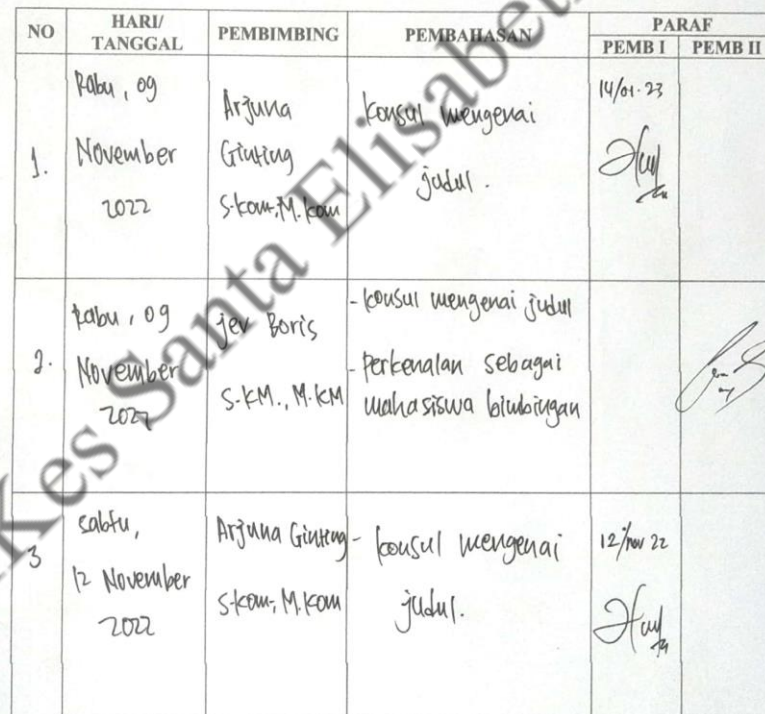 NO HARI/ TANGGAL PEMBIMBING PEMBAHASAN PARAF
PEMB I PEMB II
1.
Rabu, 09
November
2022
Arjuna
Ginting
S.kom,M.kom
konsul mengenai
judul.
14/01-23
2.
Rabu, 09
November
2022
jev Boris
S.KM., M.KM
- konsul mengenai judul
- Perkenalan sebagai
mahasiswa bimbingan
3
sabtu,
12 November
2022
Arjuna Ginting
S.kom, M.kom
- konsul mengenai
judul.
12/nov 22
Kes Santa Elisabet